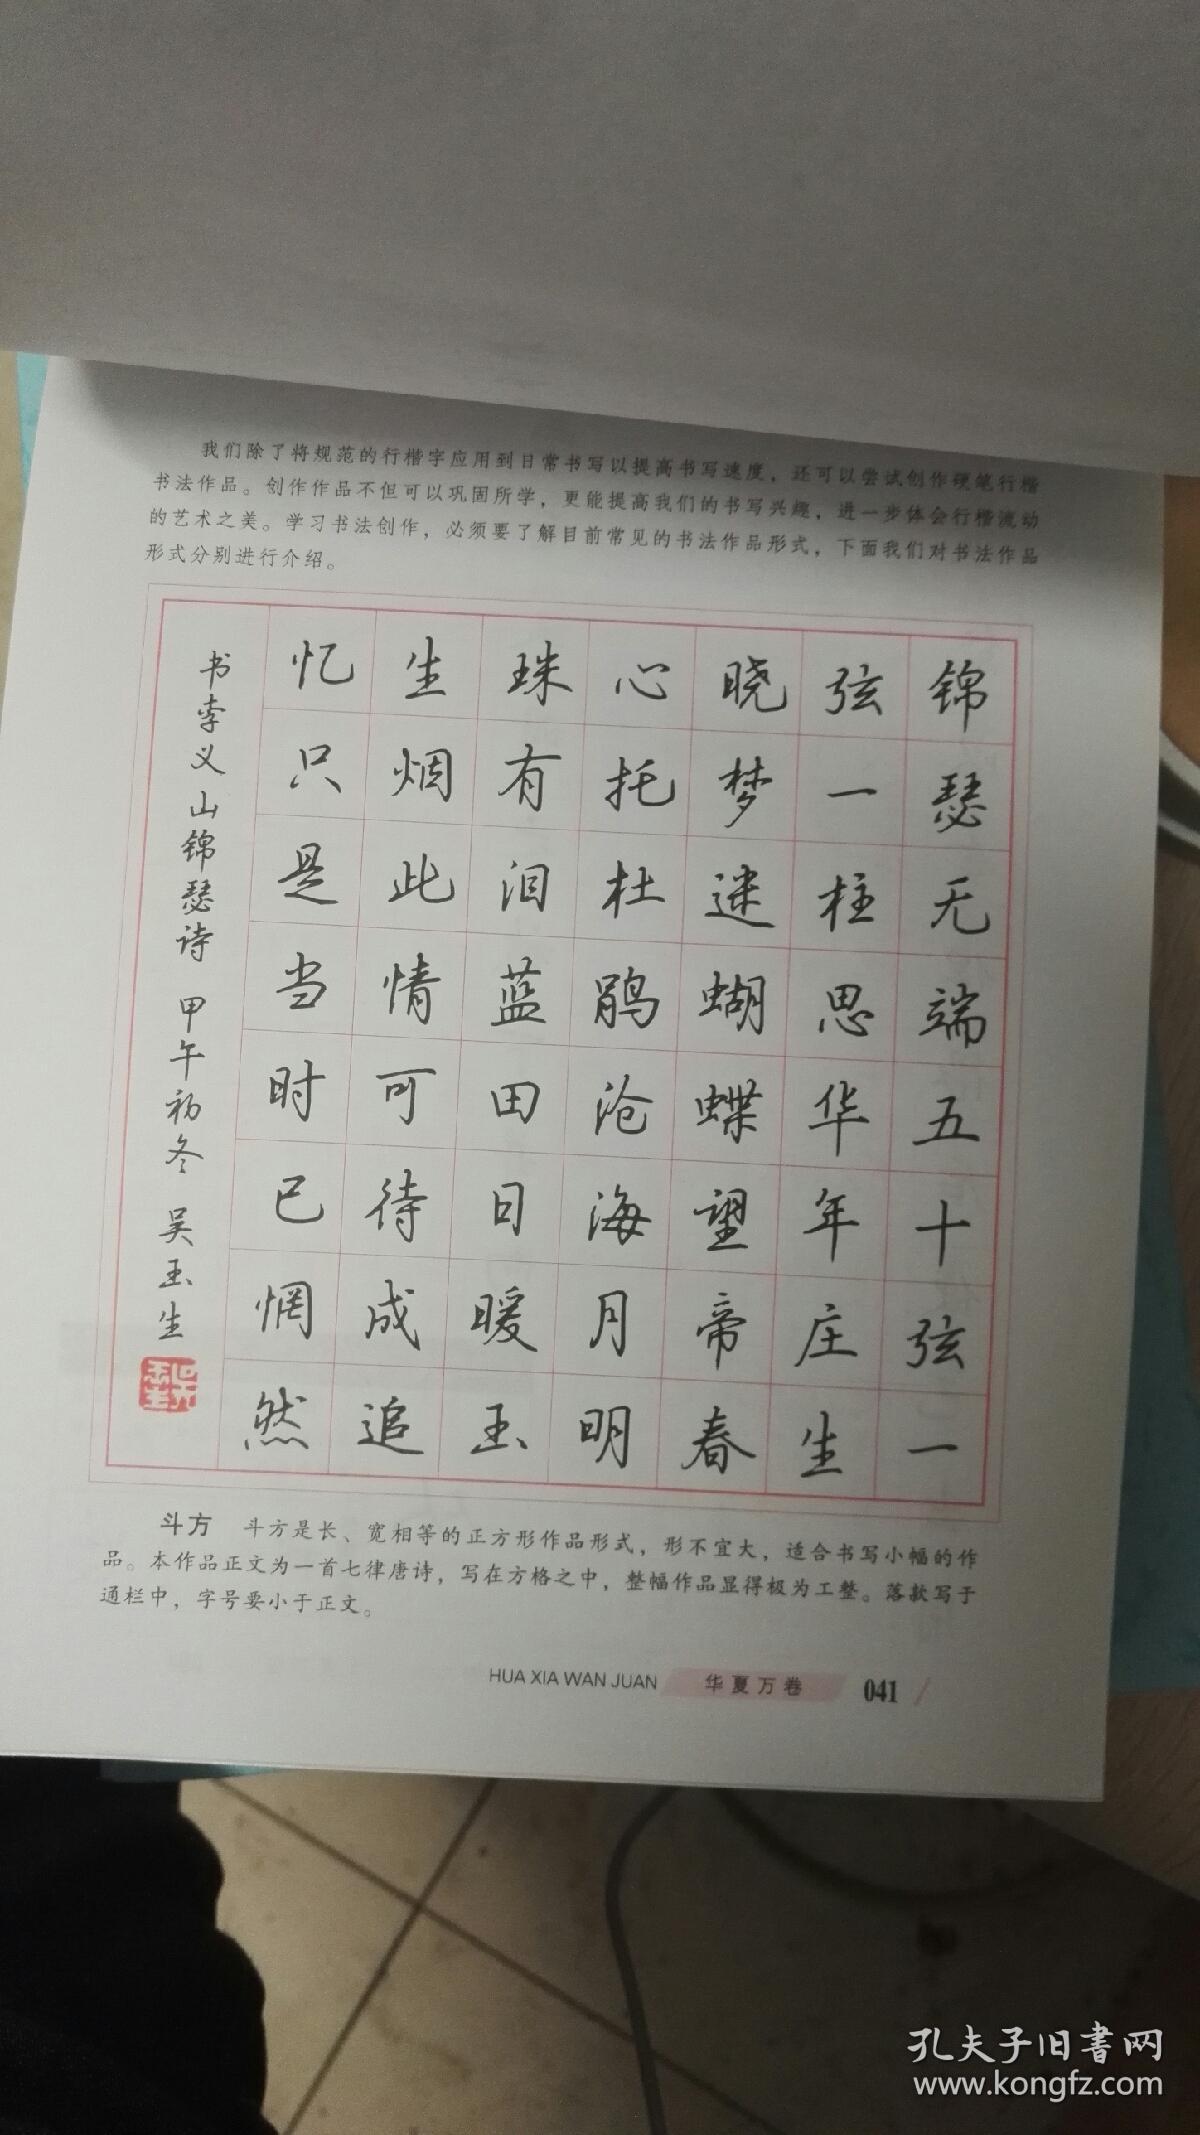 我们除了将规范的行楷字应用到日常书写以提高书写速度，还可以尝试创作硬笔行楷
书法作品。创作作品不但可以巩固所学，更能提高我们的书写兴趣，进一步体会行楷流动
的艺术之美。学习书法创作，必须要了解目前常见的书法作品形式，下面我们对书法作品
形式分别进行介绍。
锦瑟无端五十弦一
弦一柱思华年庄生
晓梦迷蝴蝶望帝春
心托杜鹃沧海月明
珠有泪蓝田日暖玉
生烟此情可待成追
忆只是当时已惘然
书李义山锦瑟诗 甲午初冬 吴玉生
斗方 斗方是长、宽相等的正方形作品形式，形不宜大，适合书写小幅的作
品。本作品正文为一首七律唐诗，写在方格之中，整幅作品显得极为工整。落款写于
通栏中，字号要小于正文。
HUA XIA WAN JUAN 华夏万卷 041
孔夫子旧书网
www.kongfz.com